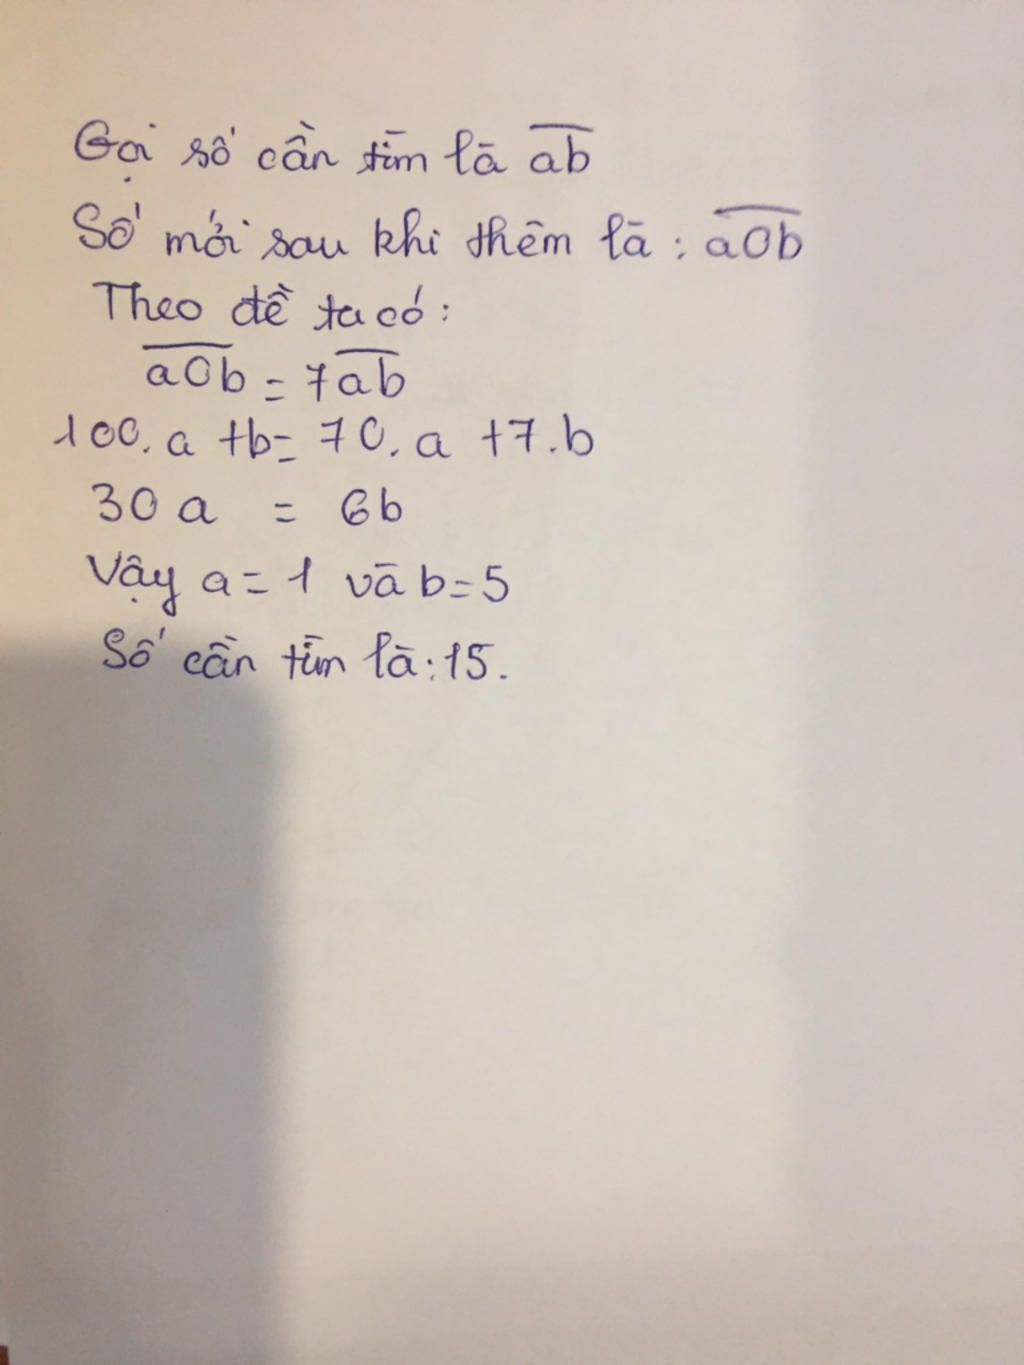 Gọi số cần tìm là ab
Số mới sau khi thêm là : a0b
Theo đề ta có :
a0b = 7ab
100.a + b = 70.a + 7.b
30a = 6b
Vậy a = 1 và b = 5
Số cần tìm là : 15.